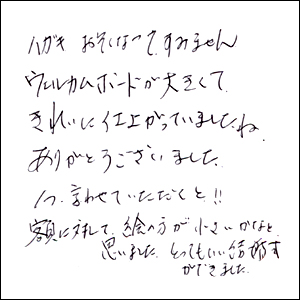 ハガキ おそくなって、すみません
ウェルカムボードが大きくて
きれいに仕上がっていましたね。
ありがとうございました。
1つ、言わせていただくと!!
額に対して、絵の方が小さいかなと
思いました。とってもいい結婚式
ができました。